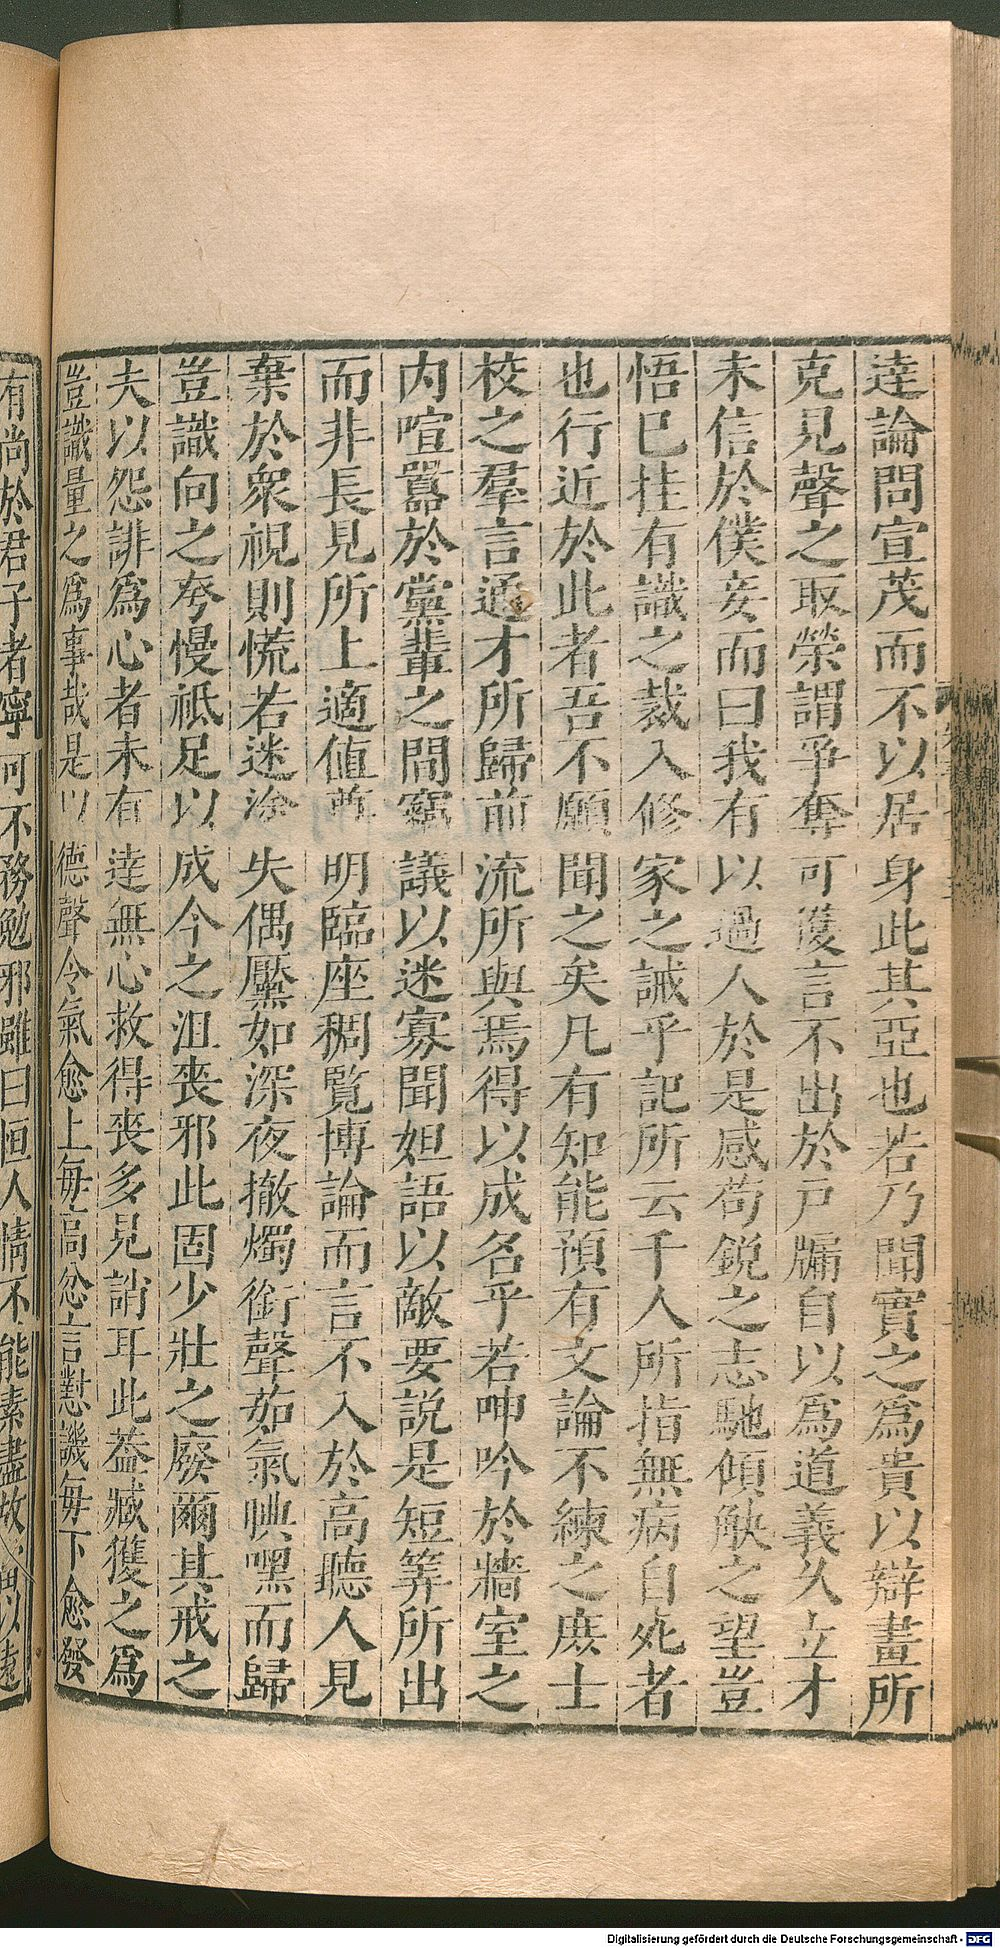 達論問宣茂而不以居身此其亞也若乃聞實之爲貴以辯畫所
克見聲之取榮謂爭奪可獲言不出於戸牖自以爲道義久立才
未信於僕妾而曰我有以過人於是感苟鋭之志馳傾觖之望豈
悟巳挂有識之裁入修家之誡乎記所云千人所指無病自死者
也行近於此者吾不願聞之矣凡有知能預有文論不練之庶士
校之羣言通才所歸前流所與焉得以成名乎若呻吟於牆室之
内喧嚣於黨輩之間竊議以迷寡聞妲語以敵要説是短筭所出
而非長見所上適値尊明臨座稠覽博論而言不入於高聽人見
棄於衆視則慌若迷塗失偶黶如深夜撤燭銜聲茹氣腆嘿而歸
豈識向之夸慢祗足以成今之沮喪邪此固少壯之廢爾其戒之
夫以怨誹爲心者未有達無心救得喪多見誚耳此葢臧獲之爲
豈識量之爲事哉是以德聲令氣愈上每高忿言懟譏每下愈發
有尚於君子者寧可不務勉邪雖曰恒人情不能素盡故
Digitalisierung gefördert durch die Deutsche Forschungsgemeinschaft - DFG